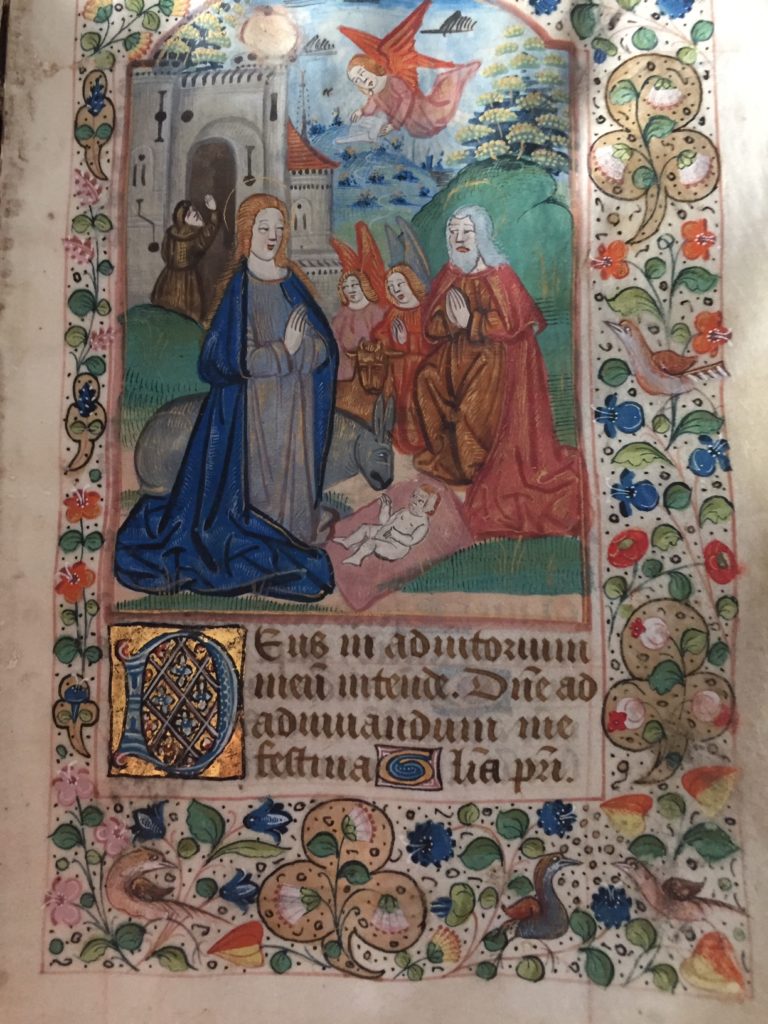 Deus in adiutorium
meū intende. Dn̄e ad
adiuuandum me
festina Gl̄ia pr̄i.